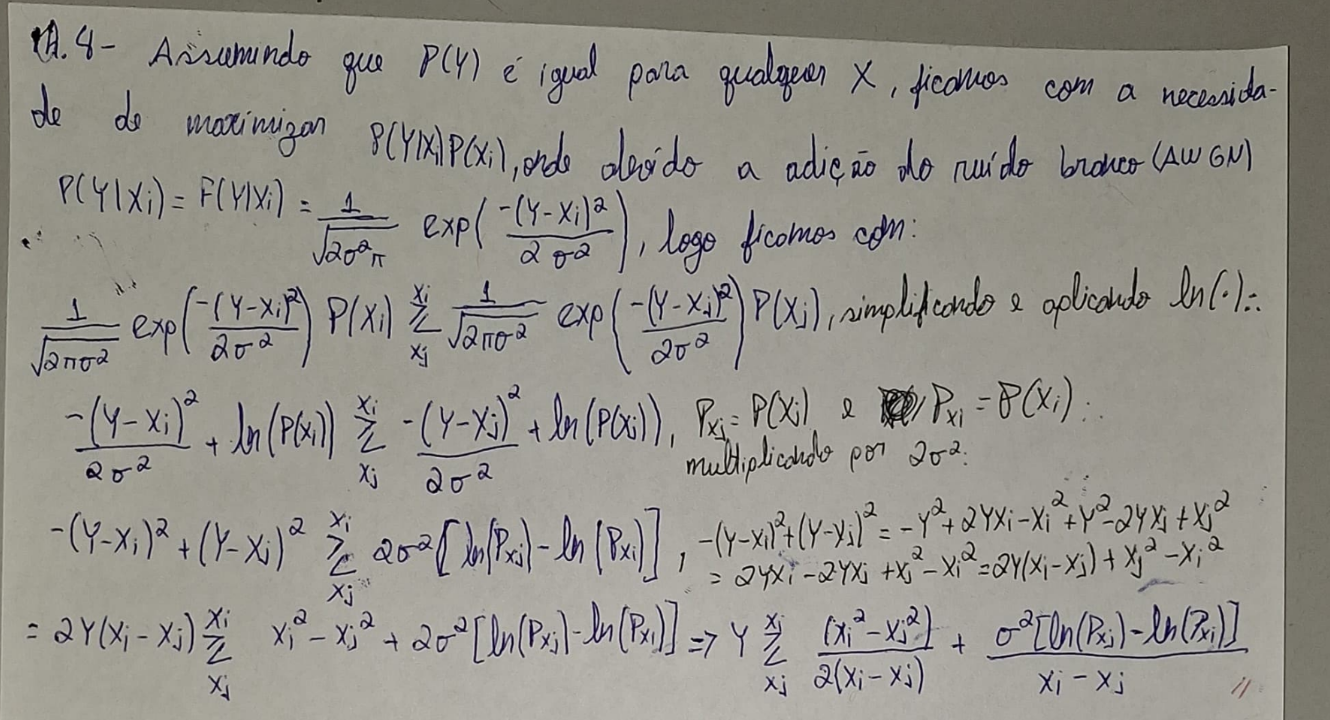 A.8- Assumindo que P(Y) é igual para qualquer X, ficamos com a necessida-
de de maximizar P(Y|Xi)P(Xi), onde devido a adição do ruído branco (AWGN)
P(Y|Xi) = F(Y|Xi) = 1/√(2σ²π) exp(-(Y-Xi)²/2σ²), logo ficamos com:
1/√(2πσ²) exp(-(Y-Xi)²/2σ²) P(Xi) ≷^{Xi}_{Xj} 1/√(2πσ²) exp(-(Y-Xj)²/2σ²) P(Xj), simplificando e aplicando ln(·):.
-(Y-Xi)²/2σ² + ln(P(Xi)) ≷^{Xi}_{Xj} -(Y-Xj)²/2σ² + ln(P(Xj)), Pxj = P(Xj) e Pxi = P(Xi):.
multiplicando por 2σ²:
-(Y-Xi)² + (Y-Xj)² ≷^{Xi}_{Xj} 2σ²[ln(Pxj) - ln(Pxi)], -(Y-Xi)²+(Y-Xj)² = -Y²+2YXi-Xi²+Y²-2YXj+Xj²
= 2YXi-2YXj+Xj²-Xi²=2Y(Xi-Xj)+Xj²-Xi²
= 2Y(Xi-Xj) ≷^{Xi}_{Xj} Xi²-Xj² + 2σ²[ln(Pxj)-ln(Pxi)] => Y ≷^{Xi}_{Xj} (Xi²-Xj²)/2(Xi-Xj) + σ²[ln(Pxj)-ln(Pxi)]/Xi-Xj //